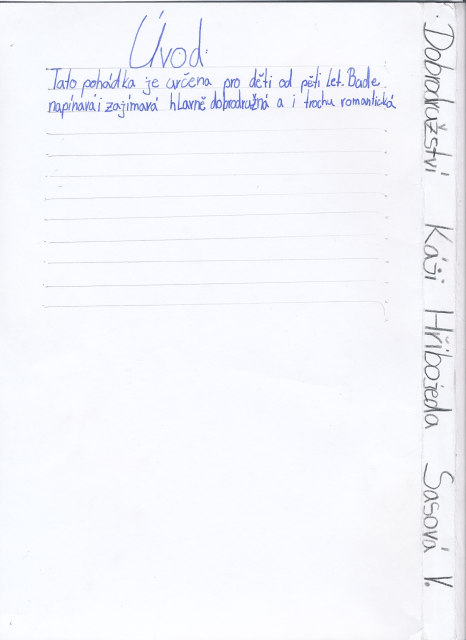 Úvod.
Tato pohádka je určena pro děti od pěti let. Bude
napínává i zajímavá hlavně dobrodružná a i trochu romantická
Dobrodružství Káji Hřibojeda Sasová V.